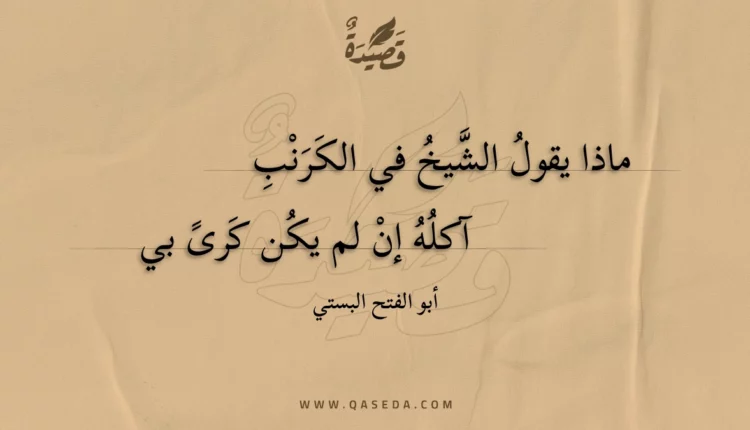 قَصِيدَةٌ
ماذا يقولُ الشَّيخُ في الكَرَنْبِ
آكلُهُ إنْ لم يكُن كَرىً بي
أبو الفتح البستي
WWW.QASEDA.COM